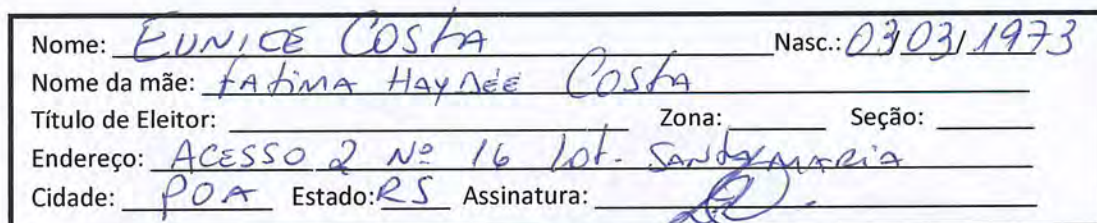 Nome: EUNICE COSTA Nasc.: 03/03/1973
Nome da mãe: FATIMA HAYDÉE COSTA
Título de Eleitor: Zona: Seção:
Endereço: ACESSO 2 Nº 16 Lot. SANTA MARIA
Cidade: POA Estado: RS Assinatura: